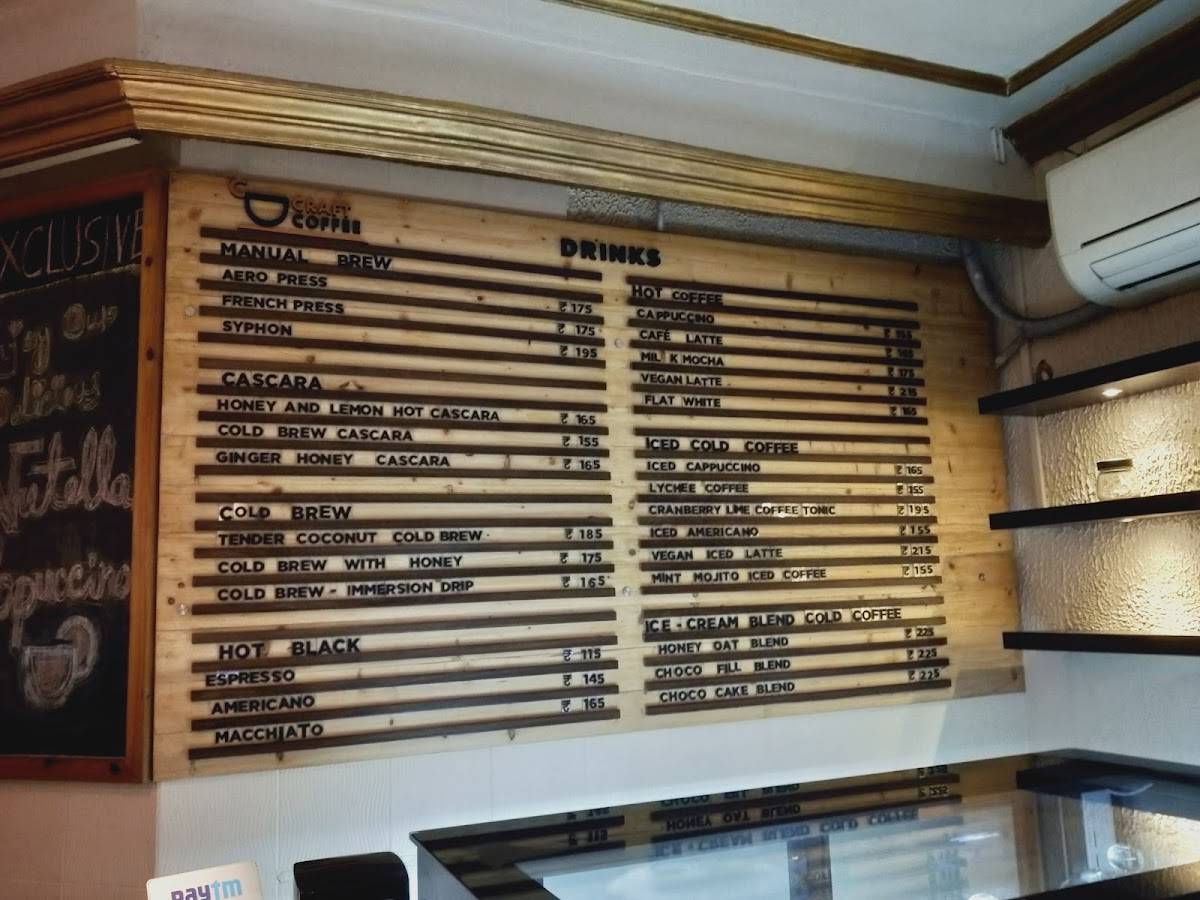 EXCLUSIVE
Nutella
CRAFT
COFFEE
DRINKS
MANUAL BREW
AERO PRESS ₹ 175
FRENCH PRESS ₹ 175
SYPHON ₹ 195
CASCARA
HONEY AND LEMON HOT CASCARA ₹ 165
COLD BREW CASCARA ₹ 155
GINGER HONEY CASCARA ₹ 165
COLD BREW
TENDER COCONUT COLD BREW ₹ 185
COLD BREW WITH HONEY ₹ 175
COLD BREW - IMMERSION DRIP ₹ 165
HOT BLACK
ESPRESSO ₹ 115
AMERICANO ₹ 145
MACCHIATO ₹ 165
HOT COFFEE
CAPPUCCINO ₹ 155
CAFÉ LATTE ₹ 165
MILK MOCHA ₹ 175
VEGAN LATTE ₹ 215
FLAT WHITE ₹ 165
ICED COLD COFFEE
ICED CAPPUCCINO ₹ 165
LYCHEE COFFEE ₹ 155
CRANBERRY LIME COFFEE TONIC ₹ 195
ICED AMERICANO ₹ 155
VEGAN ICED LATTE ₹ 215
MINT MOJITO ICED COFFEE ₹ 155
ICE - CREAM BLEND COLD COFFEE
HONEY OAT BLEND ₹ 225
CHOCO FILL BLEND ₹ 225
CHOCO CAKE BLEND ₹ 225
paytm